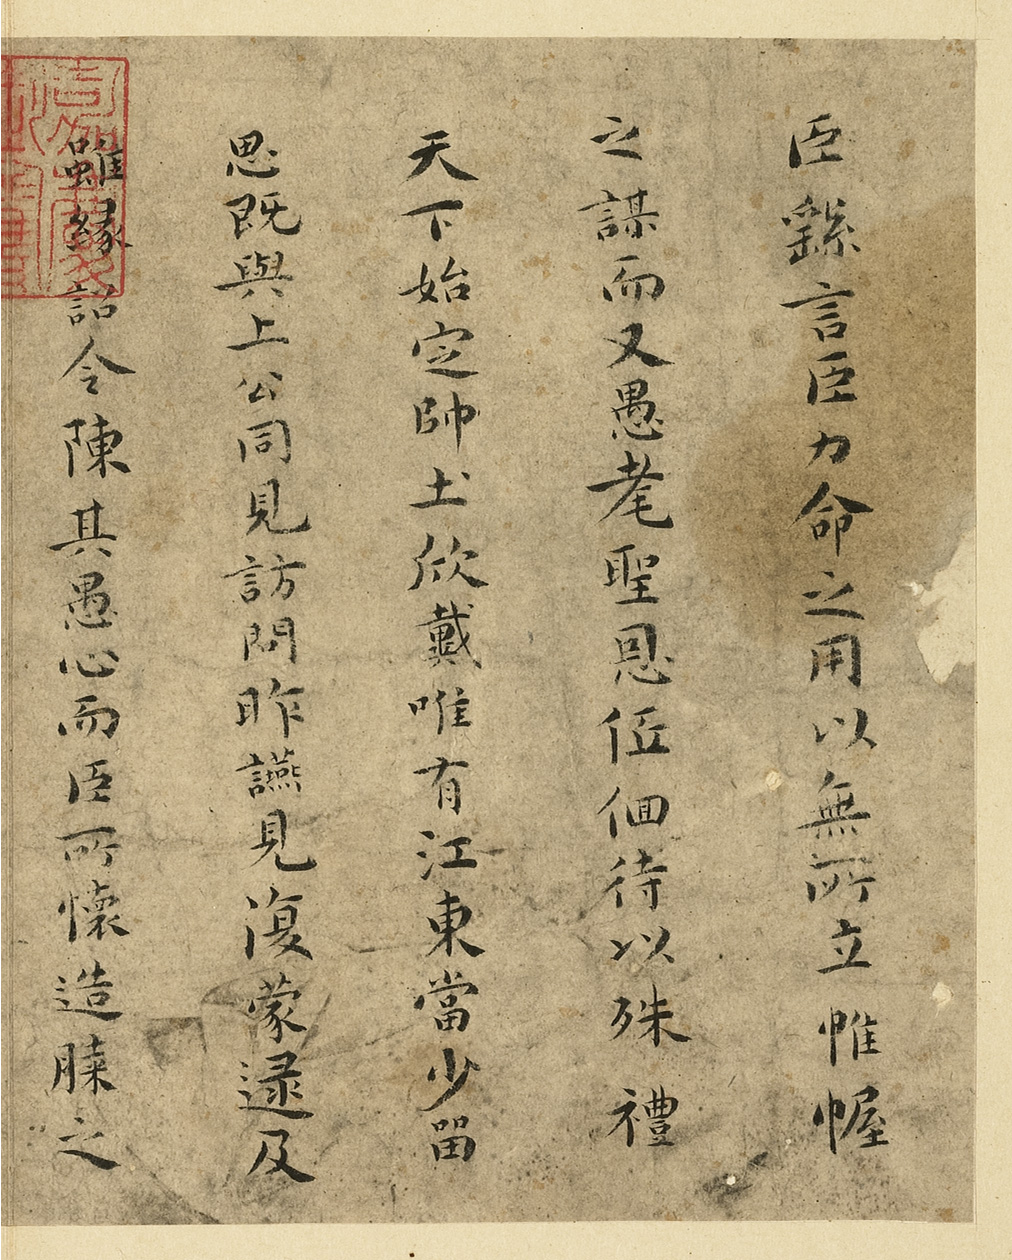 臣繇言臣力命之用以無所立帷幄
之謀而又愚耄聖恩低佪待以殊禮
天下始定帥土欣戴唯有江東當少留
思既與上公同見訪問昨讌見復蒙逮及
雖緣詔令陳其愚心而臣所懷造膝之